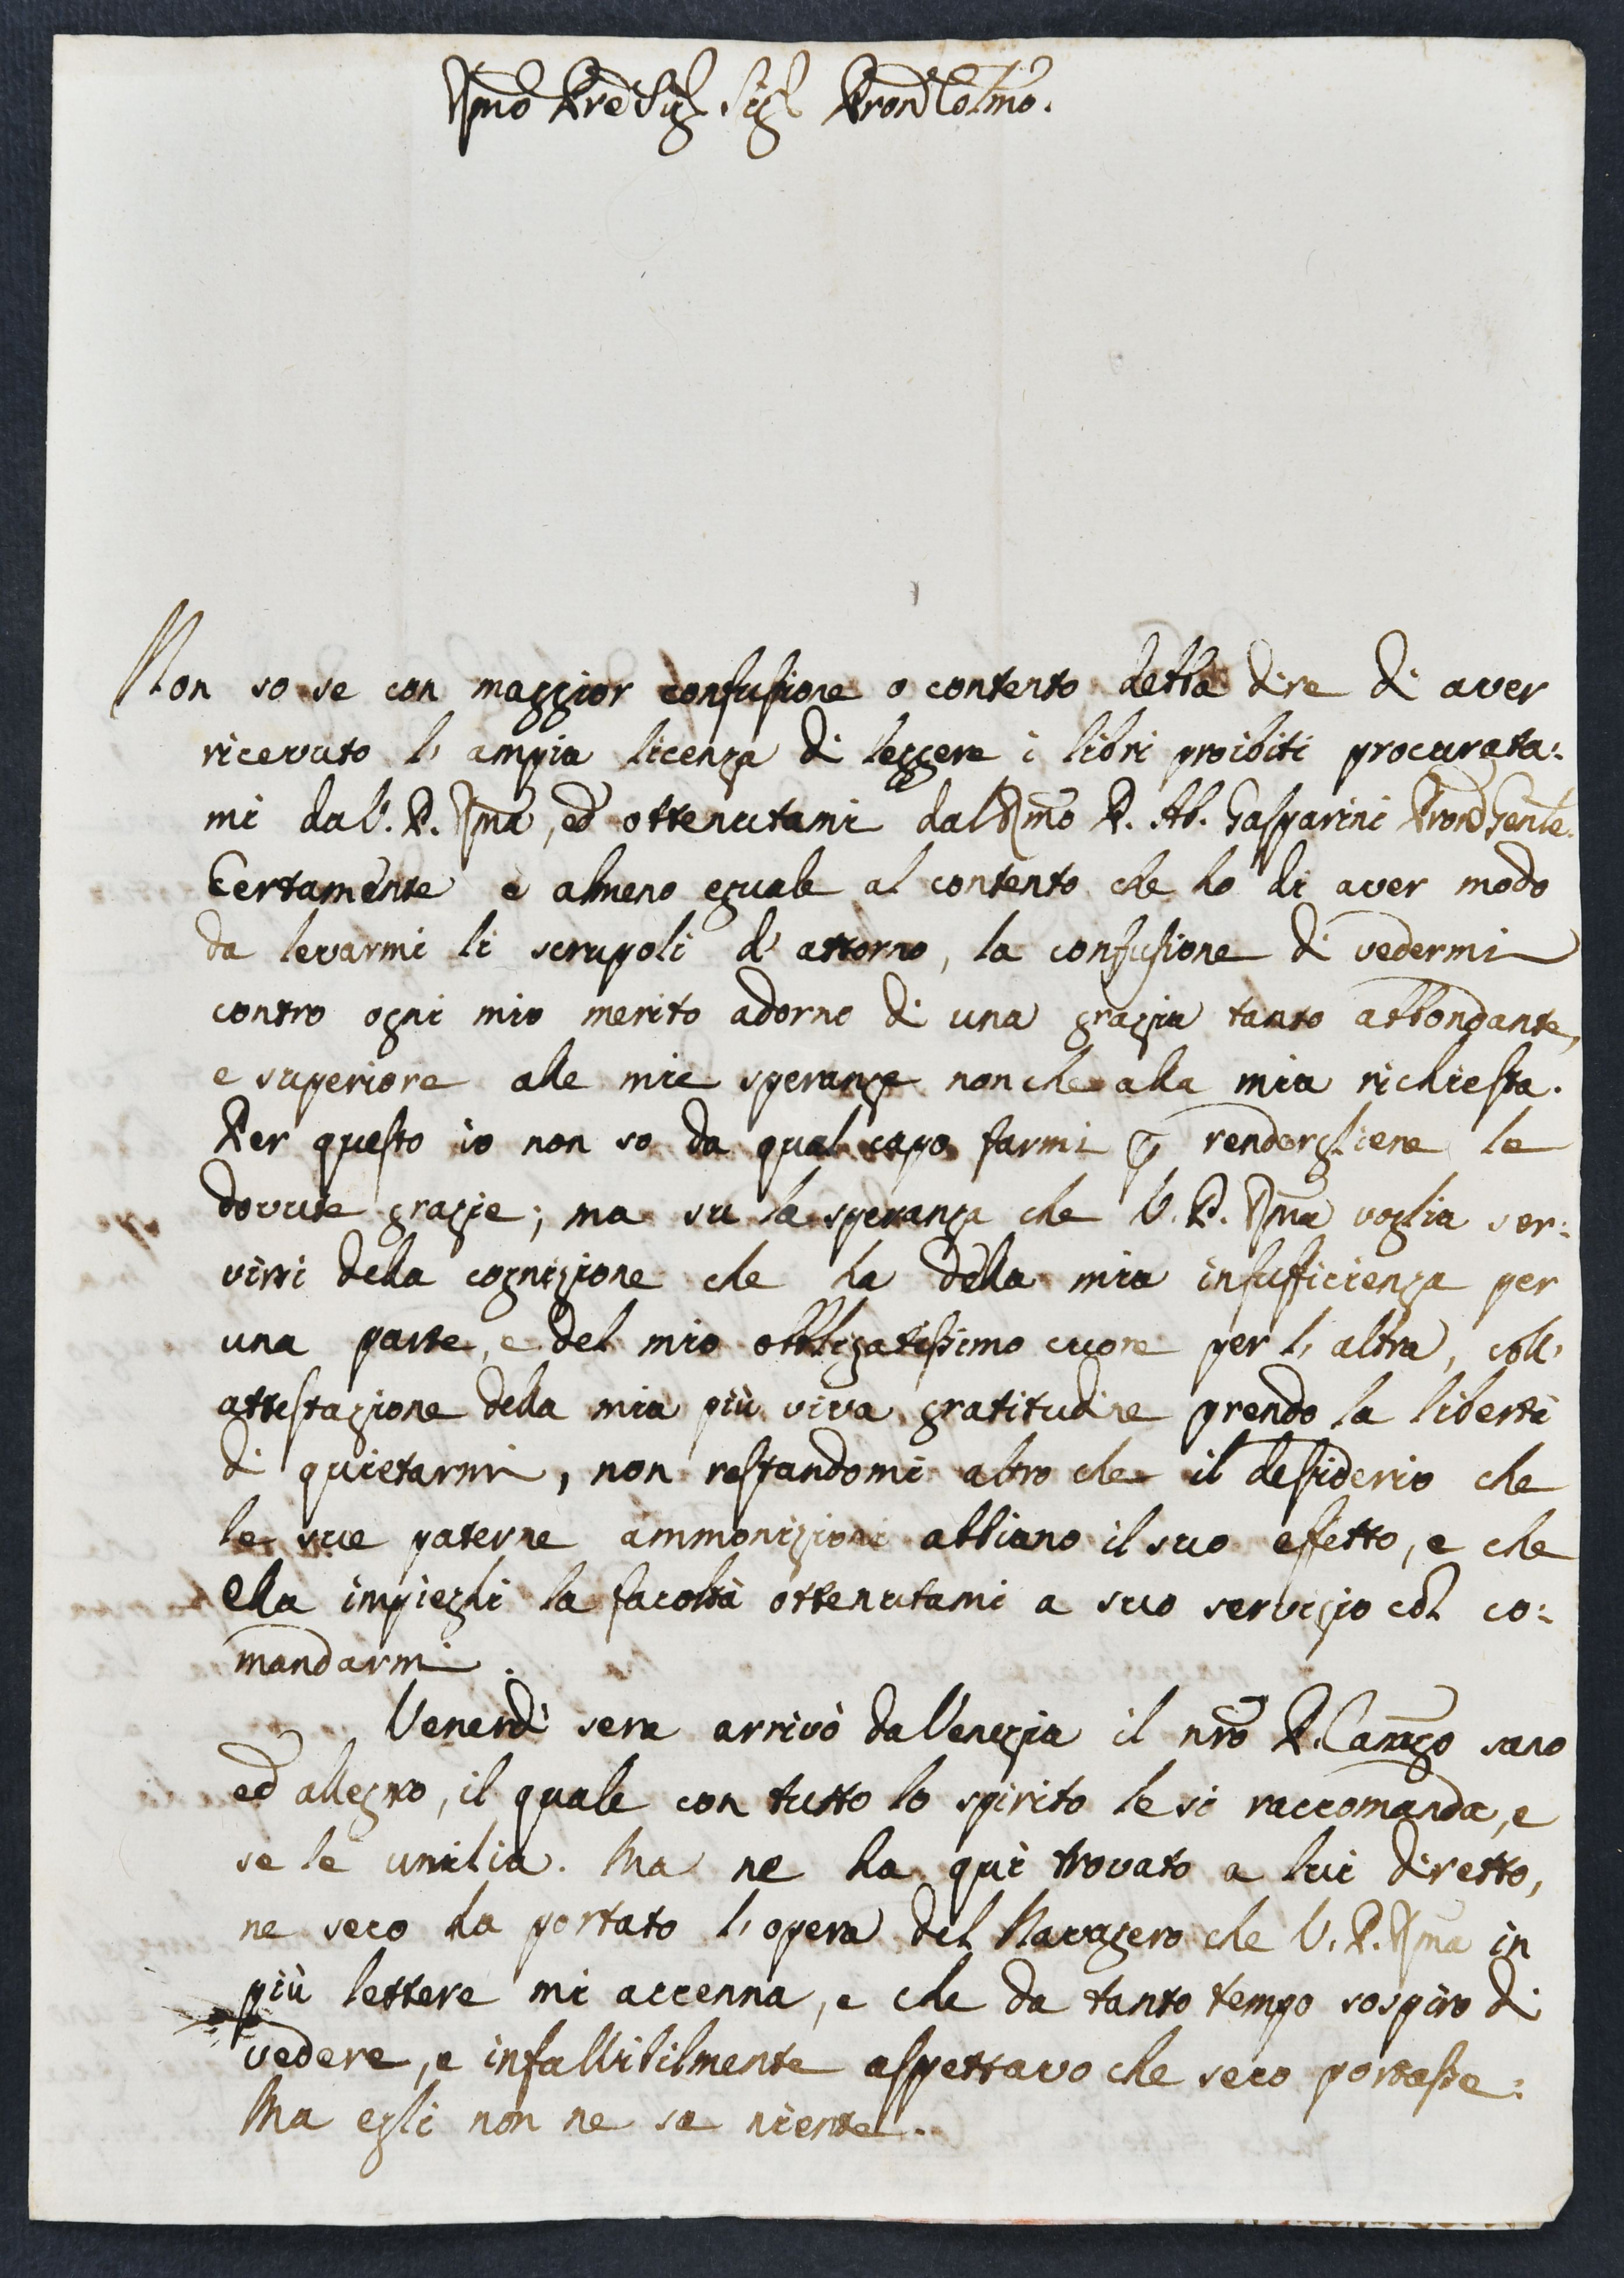 Rmo Pre Sig. Sig. Pron Colmo.
Non so se con maggior confusione o contento debba dire di aver
ricevuto l'ampia licenza di leggere i libri proibiti procurata:
mi da V. P. Rma, ed ottenutami dal Rmo P. Ab. Gasparini Pron Genle.
Certamente è almeno eguale al contento che ho di aver modo
da levarmi li scrupoli d'attorno, la confusione di vedermi
contro ogni mio merito adorno di una grazia tanto abbondante,
e superiore alle mie speranze non che alla mia richiesta.
Per questo io non so da qual capo farmi p rendergliene le
dovute grazie; ma su la speranza che V. P. Rma voglia ser:
virsi della cognizione che ha della mia insufficienza per
una parte, e del mio obbligatissimo cuore per l'altra, coll'
attestazione della mia più viva gratitudine prendo la libertà
di quietarmi, non restandomi altro che il desiderio che
le sue paterne ammonizioni abbiano il suo effetto, e che
Ella impieghi la facoltà ottenutami a suo servizio col co:
mandarmi.
Venerdì sera arrivò da Venezia il nro P. sano
ed allegro, il quale con tutto lo spirito le si raccomanda, e
se le umilia. Ma ne ha qui trovato a lui diretto,
ne seco ha portato l'opera del Navagero che V. P. Rma in
più lettere mi accenna, e che da tanto tempo sospiro di
vedere, e infallibilmente aspettavo che seco portasse:
Ma egli non ne sa niente.